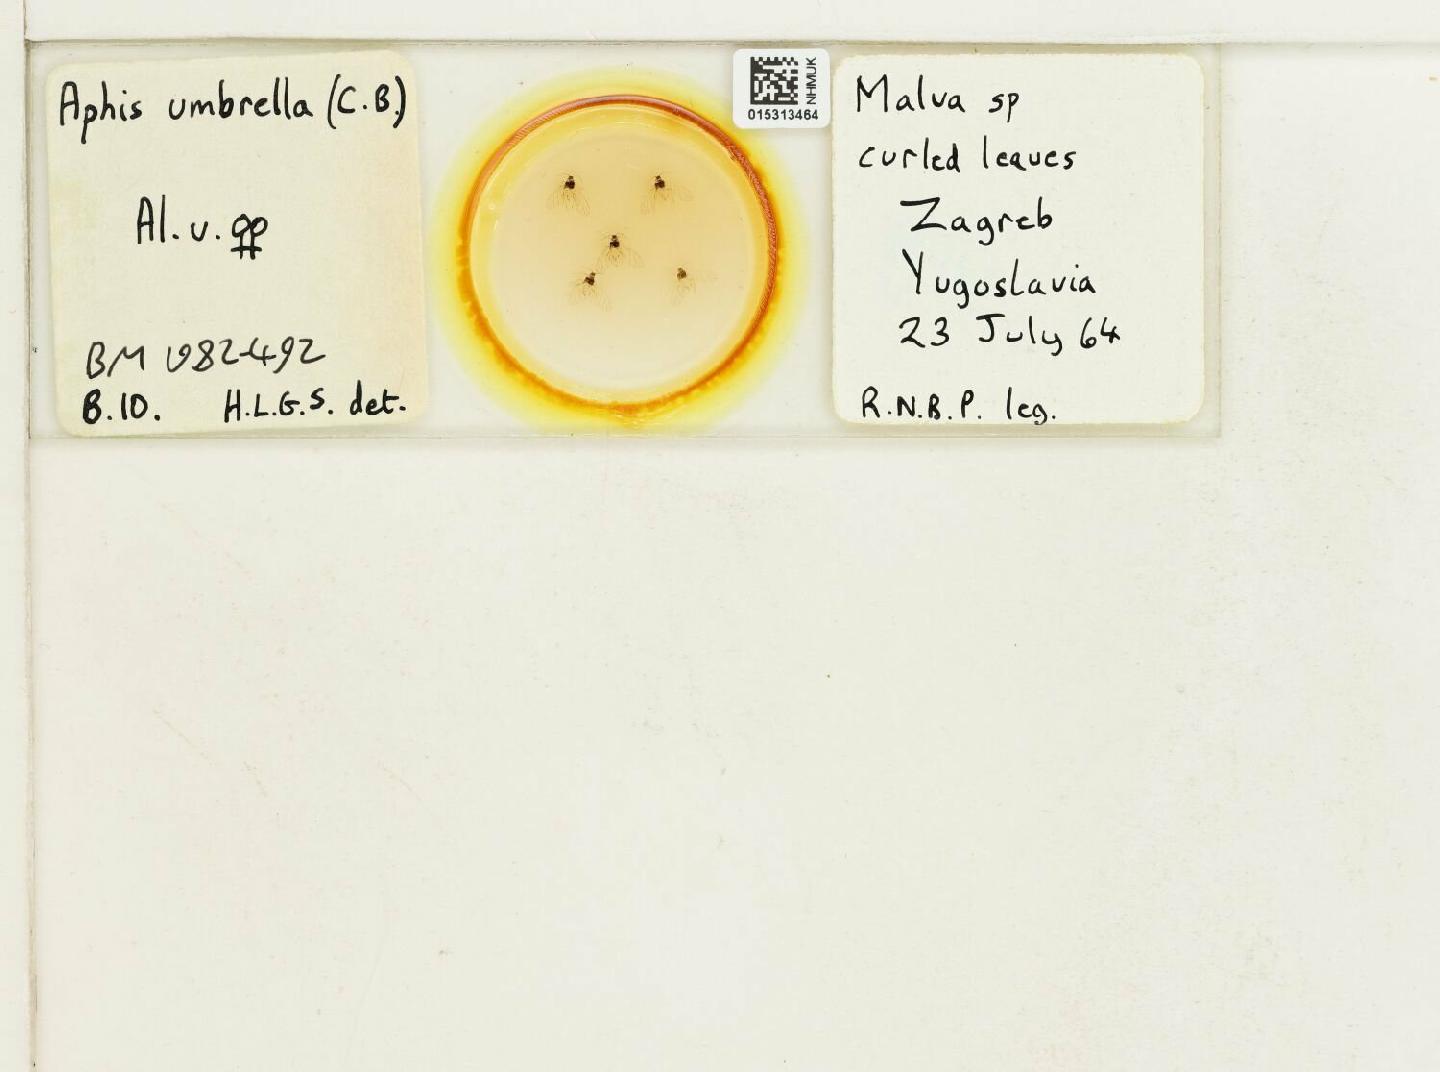 Aphis umbrella (C.B.)
Al. v. ♀♀
BM 1982-492
B.10. H.L.G.S. det.
NHMUK
015313464
Malva sp
curled leaves
Zagreb
Yugoslavia
23 July 64
R.N.B.P. leg.